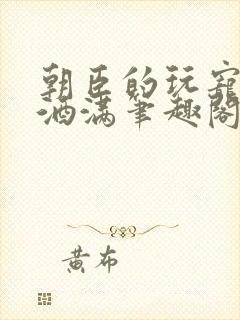 朝臣的玩寵
酒满笔趣阁
黄布